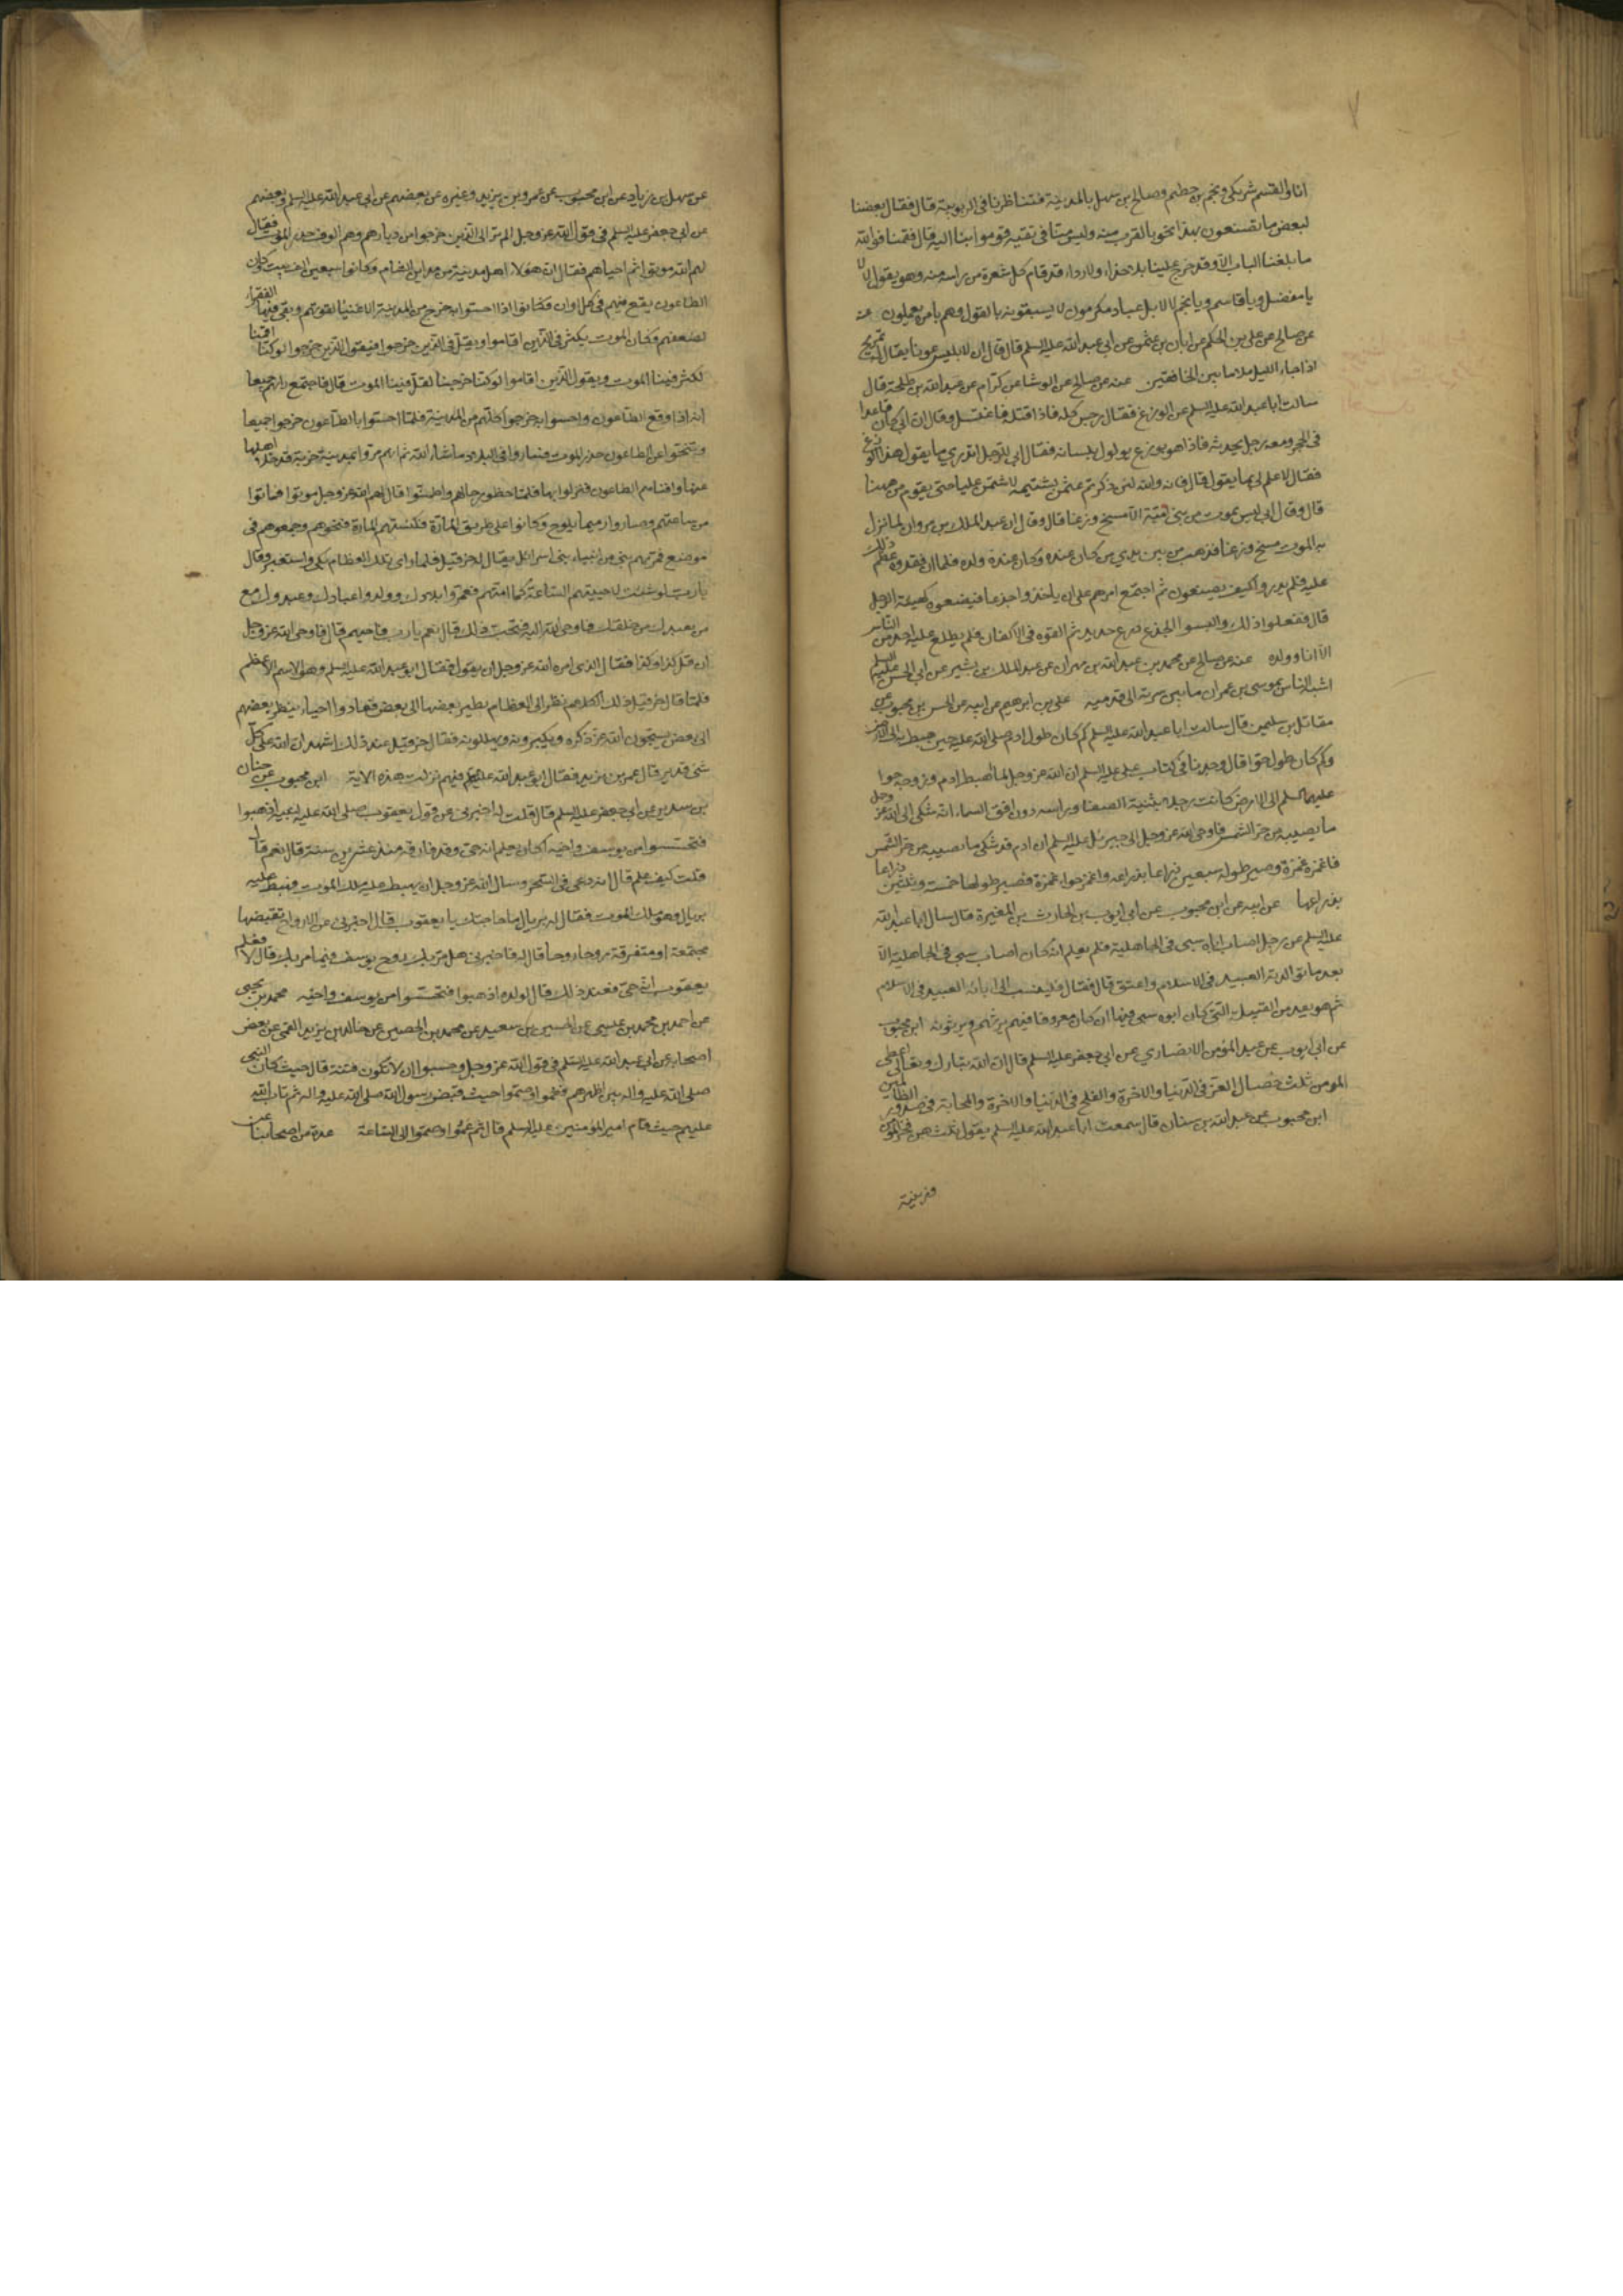 انا والقسم شريكي ونجم بن حطيم وصالح بن سهل بالمدينة فتناظرنا في الربوبية قال فقال بعضنا
لبعض ما تصنعون بهذا نحن بالقرب منه وليس منا في تقية قوموا بنا اليه قال فقمنا فوالله
ما بلغنا الباب الا وقد خرج علينا بلا حذاء ولا رداء قد قام كل شعرة من راسه منه وهو يقول لا لا
يا مفضل ويا قاسم ويا نجم لا لا بل عباد مكرمون لا يسبقونه بالقول وهم بامره يعملون عنه
عن صالح عن علي بن الحكم عن ابان بن عثمن عن ابي عبد الله عليه السلم قال قال ان لابليس عونا يقال له تمريح
اذا جاء الليل ملا ما بين الخافقين عنه عن صالح عن الوشا عن كرام عن عبد الله بن طلحة قال
سالت ابا عبد الله عليه السلم عن الوزغ فقال رجس كله فاذا قتلته فاغتسل وقال ان ابي كان قاعدا
في الحجر ومعه رجل يحدثه فاذا هو بوزغ يولول بلسانه فقال ابي للرجل اتدري ما يقول هذا الوزغ
فقال لا علم لي بما يقول قال فانه والله لئن ذكرتم عثمن بشتيمة لاشتمن عليا حتى يقوم من ههنا
قال وقال ابي ليس يموت من بني امية الا مسخ وزغا قال وقال ان عبد الملك بن مروان لما نزل
به الموت مسخ وزغا فذهب من بين يدي من كان عنده وكان عنده ولده فلما ان فقدوه عظم ذلك
عليه فلم يدروا كيف يصنعون ثم اجتمع امرهم على ان ياخذوا جذعا فيضعوه كهيئة الرجل
قال ففعلوا ذلك والبسوا الجذع درع حديد ثم القوه في الاكفان فلم يطلع عليه احد من الناس
الا انا وولده عنه عن صالح عن محمد بن عبد الله بن مهران عن عبد الملك بن بشير عن ابي الحسن عليه السلم
اشبه الناس بموسى بن عمران ما بين سرته الى قدميه علي بن ابراهيم عن ابيه عن الحسن بن محبوب عن
مقاتل بن سليمن قال سالت ابا عبد الله عليه السلم كم كان طول ادم صلى الله عليه حين هبط به الى الارض
وكم كان طول حوا قال وجدنا في كتاب علي عليه السلم ان الله عز وجل لما اهبط ادم وزوجته حوا
عليهما السلم الى الارض كانت رجله بثنية الصفا وراسه دون افق السماء انه شكى الى الله عز وجل
ما يصيبه من حر الشمس فاوحى الله عز وجل الى جبرئل عليه السلم ان ادم قد شكى ما يصيبه من حر الشمس
فاغمزه غمزة وصير طوله سبعين ذراعا بذراعه واغمز حواء غمزة فصير طولها خمسة وثلثين ذراعا
بذراعها عن ابيه عن ابن محبوب عن ابي ايوب بن الحارث بن المغيرة قال سال ابا عبد الله
عليه السلم عن رجل اصاب اباه سبي في الجاهلية فلم يعلم انه كان اصاب سبي في الجاهلية الا
بعد ما توالدته العبيد في الاسلام واعتق قال فقال فلينسب الى ابائه العبيد في الاسلام
ثم هو يعد من القبيلة التي كان ابوه سبي فيها ان كان معروفا فيهم يرثهم ويرثونه ابن محبوب
عن ابي ايوب عن عبد المؤمن الانصاري عن ابي جعفر عليه السلم قال ان الله تبارك وتعالى اعطى
المومن ثلث خصال العز في الدنيا والاخرة والفلج في الدنيا والاخرة والمهابة في صدور الظالمين
ابن محبوب عن عبد الله بن سنان قال سمعت ابا عبد الله عليه السلم يقول ثلث هن فخر المؤمن
وزينته
عن سهل بن زياد عن ابن محبوب عن عمرو بن يزيد وغيره عن بعضهم عن ابي عبد الله عليه السلم وبعضهم
عن ابي جعفر عليه السلم في قول الله عز وجل الم تر الى الذين خرجوا من ديارهم وهم الوف حذر الموت فقال
لهم الله موتوا ثم احياهم فقال ان هؤلاء اهل مدينة من مداين الشام وكانوا سبعين الف بيت وكان
الطاعون يقع فيهم في كل اوان فكانوا اذا احسوا به خرج من المدينة الاغنياء لقوتهم وبقي فيها الفقراء
لضعفهم وكان الموت يكثر في الذين اقاموا ويقل في الذين خرجوا فيقول الذين خرجوا لو كنا اقمنا
لكثر فينا الموت ويقول الذين اقاموا لو كنا خرجنا لقل فينا الموت قال فاجتمع رايهم جميعا
انه اذا وقع الطاعون واحسوا به خرجوا كلهم من المدينة فلما احسوا بالطاعون خرجوا جميعا
وتنحوا عن الطاعون حذر الموت فساروا في البلاد ما شاء الله ثم انهم مروا بمدينة خربة قد جلا اهلها
عنها وافناهم الطاعون فنزلوا بها فلما حطوا رحالهم واطمئنوا قال لهم الله عز وجل موتوا فماتوا
من ساعتهم وصاروا رميما يلوح وكانوا على طريق المارة فكنستهم المارة فنحوهم وجمعوهم في
موضع فمر بهم نبي من انبياء بني اسرائل يقال له حزقيل فلما راى تلك العظام بكى واستعبر وقال
يا رب لو شئت لاحييتهم الساعة كما امتهم فعمروا بلادك وولدوا عبادك وعبدوك مع
من يعبدك من خلقك فاوحى الله اليه فتحب ذلك قال نعم يا رب فاحيهم قال فاوحى الله عز وجل
ان قل كذا وكذا فقال الذي امره الله عز وجل ان يقوله فقال ابو عبد الله عليه السلم وهو الاسم الاعظم
فلما قال حزقيل ذلك الكلام نظر الى العظام يطير بعضها الى بعض فعادوا احياء ينظر بعضهم
الى بعض يسبحون الله عز ذكره ويكبرونه ويهللونه فقال حزقيل عند ذلك اشهد ان الله على كل
شئ قدير قال عمر بن يزيد فقال ابو عبد الله عليه السلم فيهم نزلت هذه الاية ابن محبوب عن حنان
بن سدير عن ابي جعفر عليه السلم قال قلت له اخبرني عن قول يعقوب صلى الله عليه لبنيه اذهبوا
فتحسسوا من يوسف واخيه اكان يعلم انه حي وقد فارقه منذ عشرين سنة قال نعم قال
قلت كيف علم قال انه دعى في السحر وسال الله عز وجل ان يهبط عليه ملك الموت فهبط عليه
بريال وهو ملك الموت فقال له بريال ما حاجتك يا يعقوب قال اخبرني عن الارواح تقبضها
مجتمعة او متفرقة روحا روحا قال له فاخبرني هل مر بك روح يوسف فيما مر بك قال لا فعلم
يعقوب انه حي فعند ذلك قال لولده اذهبوا فتحسسوا من يوسف واخيه محمد بن يحيى
عن احمد بن محمد بن عيسى عن الحسين بن سعيد عن محمد بن الحصين عن خالد بن يزيد القمي عن بعض
اصحابه عن ابي عبد الله عليه السلم في قول الله عز وجل وحسبوا ان لا تكون فتنة قال حيث كان النبي
صلى الله عليه واله بين اظهرهم فعموا وصموا حيث قبض رسول الله صلى الله عليه واله ثم تاب الله
عليهم حيث قام امير المؤمنين عليه السلم قال ثم عموا وصموا الى الساعة عدة من اصحابنا عن